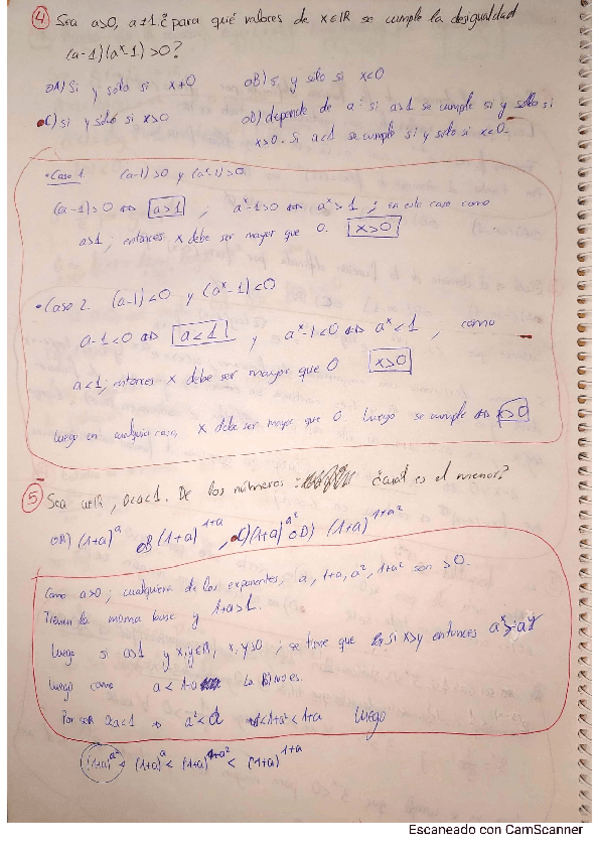 ④ Sea a>0, a≠1. ¿para qué valores de x∈ℝ se cumple la desigualdad
(a-1)(aˣ-1)>0?
○A) Si y solo si x≠0 ○B) si y solo si x<0
●C) si y sólo si x>0 ○D) depende de a: si a>1 se cumple si y solo si
x>0. Si a<1 se cumple si y solo si x<0.
• Caso 1 (a-1)>0 y (aˣ-1)>0.
(a-1)>0 ⇔ a>1 ; aˣ-1>0 ⇔ aˣ>1 ; en este caso como
a>1; entonces x debe ser mayor que 0. x>0
• Caso 2. (a-1)<0 y (aˣ-1)<0
a-1<0 ⇔ a<1 y aˣ-1<0 ⇔ aˣ<1 , como
a<1; entonces x debe ser mayor que 0 x>0
luego en cualquier caso, x debe ser mayor que 0 luego se cumple ⇔ x>0
⑤ Sea a∈ℝ, 0<a<1. De los números : ¿cuál es el menor?
○A) (1+a)ᵃ ○B) (1+a)¹⁺ᵃ ●C) (1+a)^a² ○D) (1+a)^1+a²
Como a>0; cualquiera de los exponentes, a, 1+a, a², 1+a² son >0.
Tienen la misma base y 1+a>1.
luego si a>1 y x,y∈ℝ, x,y>0 ; se tiene que si x>y entonces aˣ>aʸ
luego como a<1+a la B) no es.
Por ser 0<a<1 ⇒ a²<a 1<1+a²<1+a luego
(1+a)^a² < (1+a)ᵃ < (1+a)^1+a² < (1+a)¹⁺ᵃ
Escaneado con CamScanner